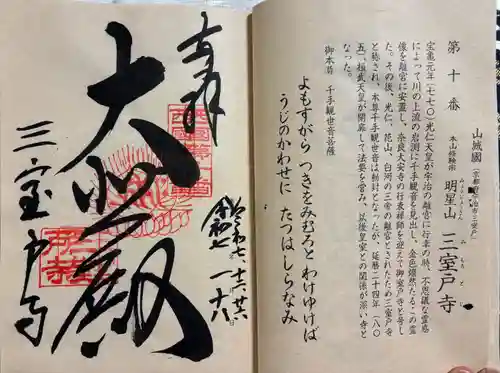 第十番
山城国
(京都府宇治市三室戸)
本山修験宗
明星山 三室戸寺
宝亀元年(七七〇)光仁天皇が宇治の離宮に行幸の時、不思議な霊感
によって川の上流の岩淵に千手観音を見出し、金色燦然たるこの霊
像を離宮に安置し、奈良大安寺の行表禅師を迎えて御室戸寺と号し
た。その後、光仁、花山、白河の三帝の離宮とされたため三室戸寺
と称され、本尊千手観世音は秘封となったが、延暦二十四年(八〇
五)、桓武天皇が開扉して法要を営み、以後皇室との関係が深い寺と
なった。
御本尊 千手観世音菩薩
よもすがら つきをみむろと わけゆけば
うじのかわせに たつはしらなみ
奉拝
大悲殿
三室戸寺
令和七